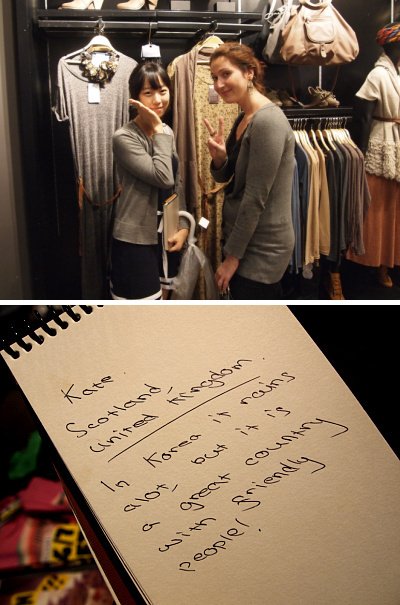 Kate.
Scotland,
United Kingdom.
In Korea it rains
alot, but it is
a great country
with friendly
people!